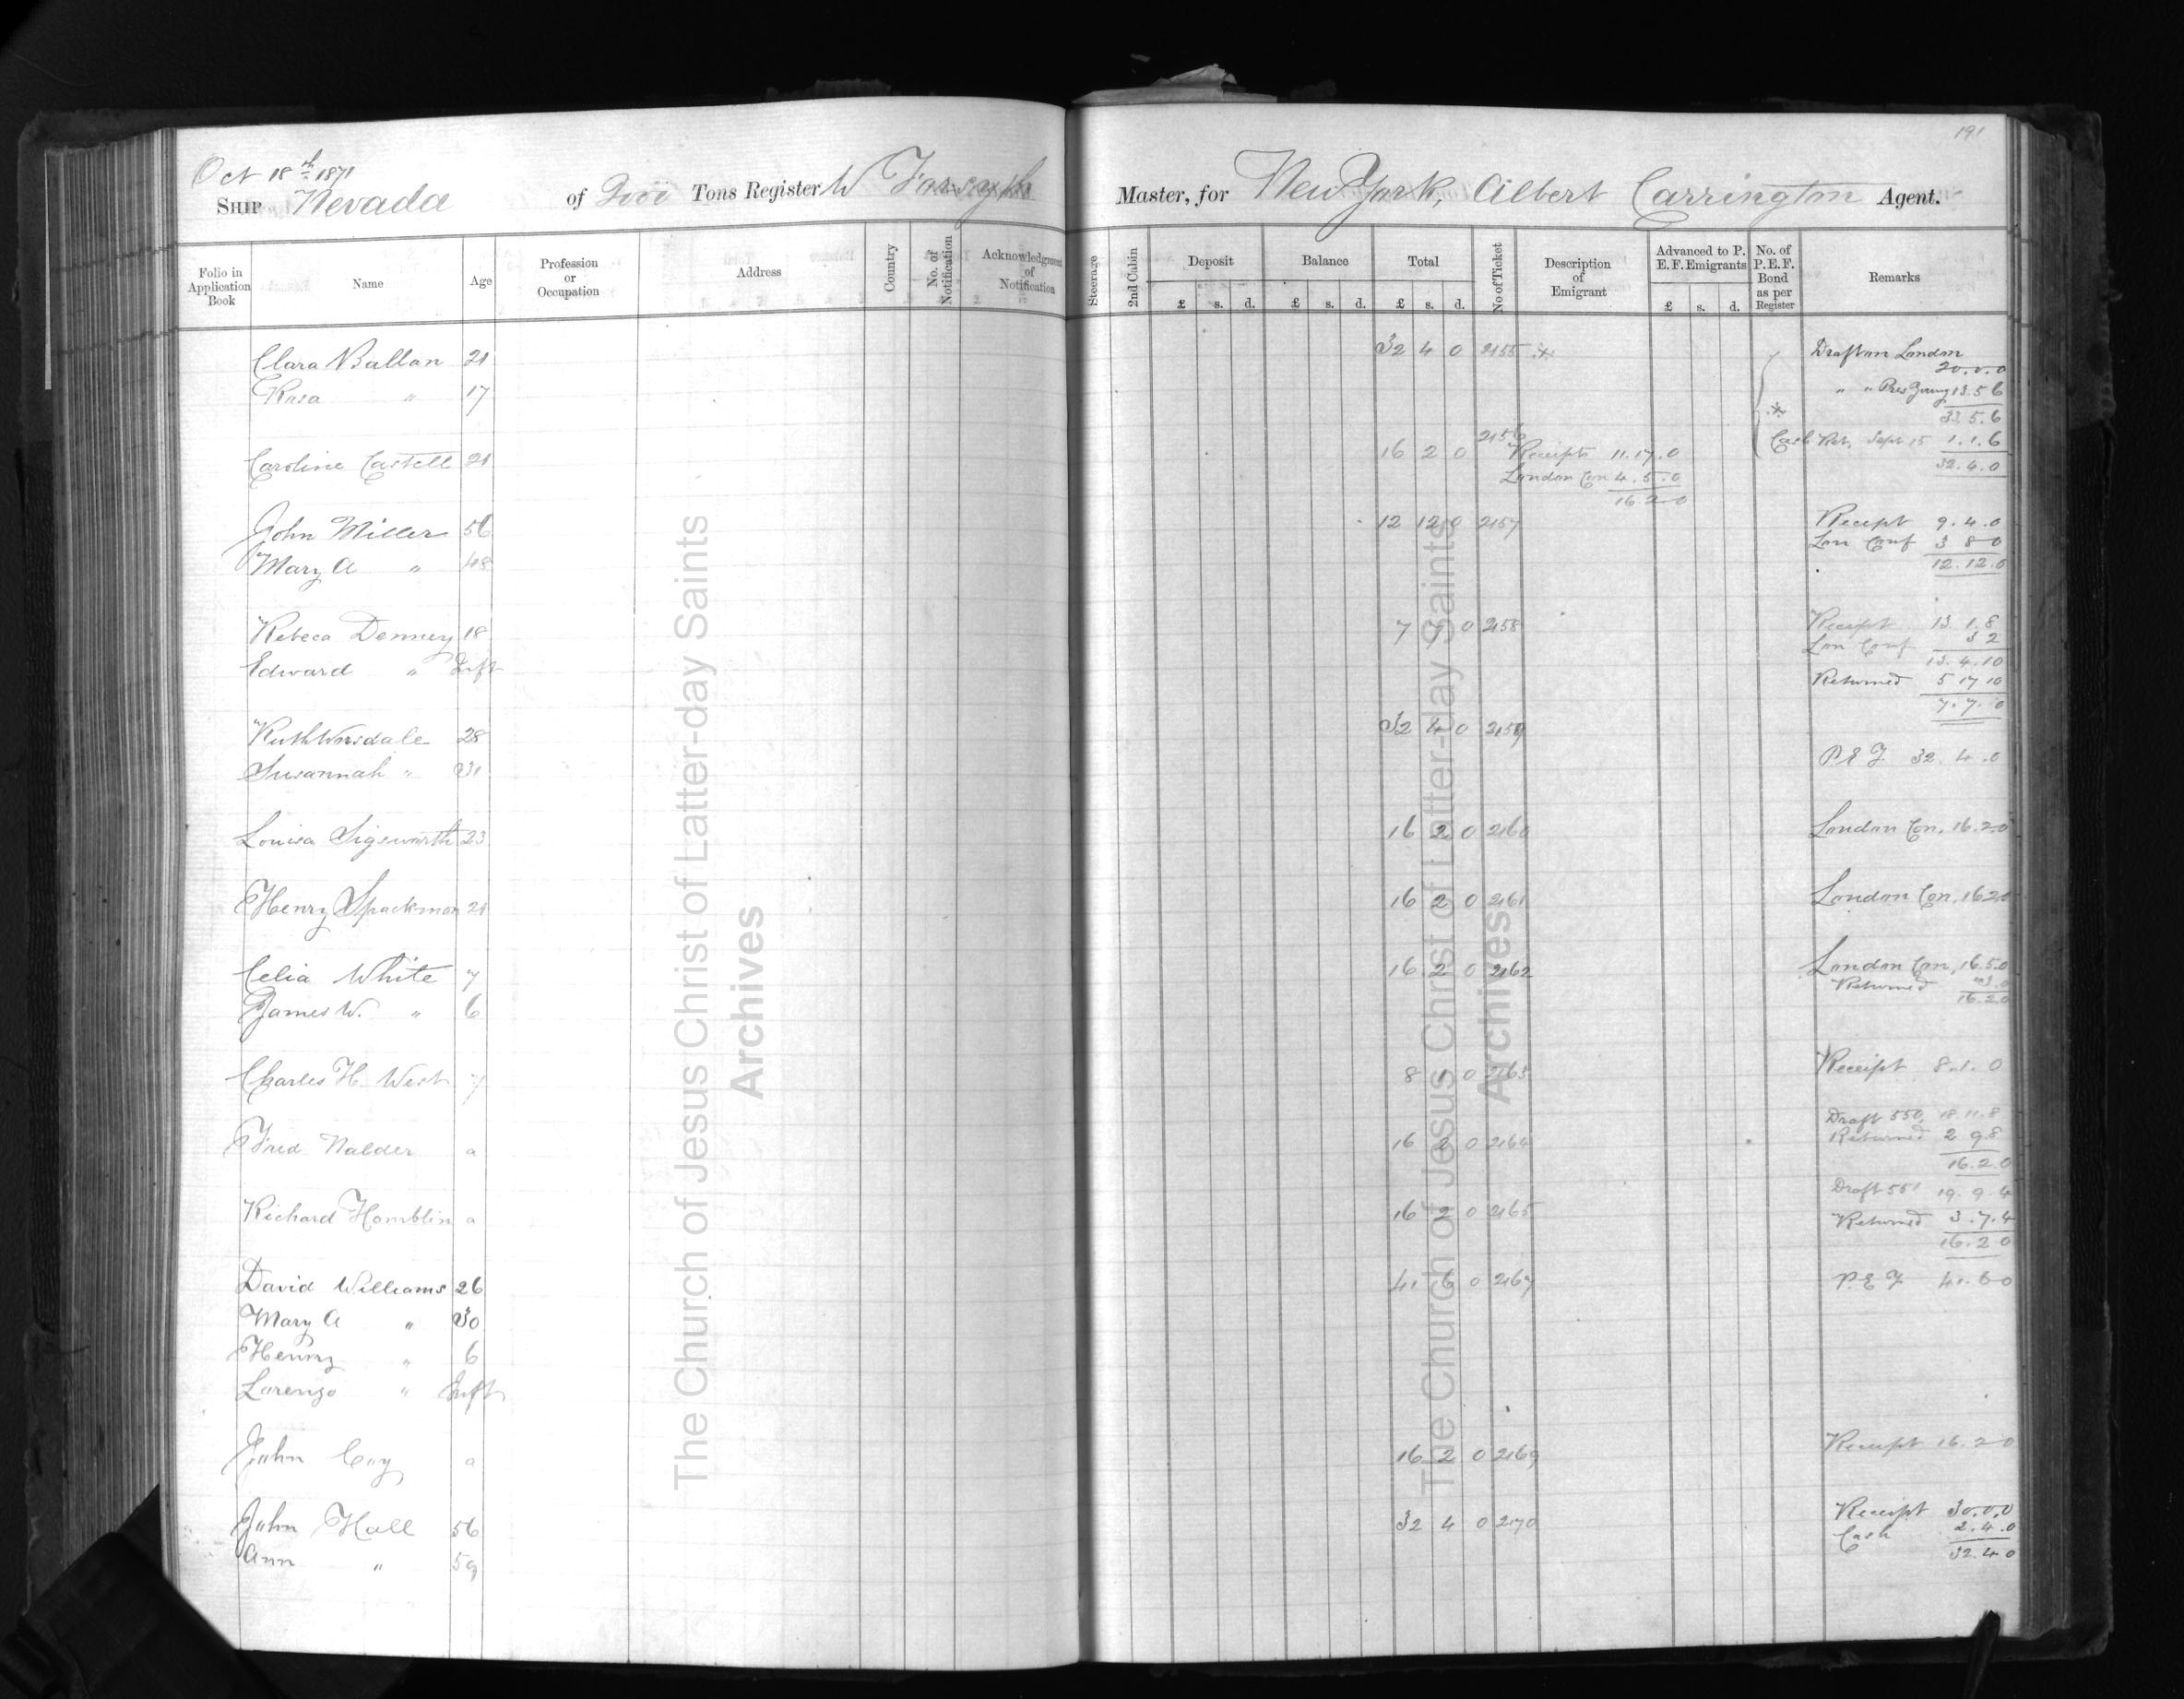 191
Oct 18th 1871
SHIP Nevada of Tons Register W Forsyth Master, for New York, Albert Carrington Agent.
Folio in Application Book Name Age Profession or Occupation Address Country No. of Notification Acknowledgment of Notification Steerage 2nd Cabin Deposit Balance Total No of Ticket Description of Emigrant Advanced to P. E. F. Emigrants No. of P. E. F. Bond as per Register Remarks
£ s. d. £ s. d. £ s. d. £ s. d.
Clara Ballan 21 32 4 0 2155 * Draft on London
20.0.0
Rosa " 17 " " Pres Young 13.5 6
* 33.5.6
Cash Ret. Sept 15 1.1.6
32.4.0
Caroline Castell 21 16 2 0 2156 Receipts 11.17.0
London Con 4.5.0
16.2.0
John Miller 56 12 12 0 2157 Receipt 9.4.0
Lon Conf 3 8 0
Mary A " 48 12.12.0
Rebeca Denney 18 7 7 0 2158 Receipt 13.1.8
Lon Conf 3 2
13.4.10
Edward " Inft Returned 5 17 10
7.7.0
Ruth Worsdale 28 32 4 0 2159
Susannah " 31 P E F 32.4.0
Louisa Sigsworth 23 16 2 0 2160 London Con. 16.2.0
Henry Spackman 21 16 2 0 2161 London Con. 16 2 0
Celia White 7 16 2 0 2162 London Con. 16.5.0
Returned "3.0
James W. " 6 16.2.0
Charles H. West 7 8 1 0 2163 Receipt 8.1.0
Draft 550 18.11.8
Fred Nalder a 16 2 0 2164 Returned 2 9.8
16.2.0
Draft 551 19.9.4
Richard Hamblin a 16 2 0 2165 Returned 3.7.4
16.2 0
David Williams 26 41 6 0 2167 P.E F 41.6 0
Mary A " 30
Henry " 6
Lorenzo " Inft
John Coy a 16 2 0 2169 Receipt 16.2 0
John Hall 56 32 4 0 2170 Receipt 30.0.0
Cash 2.4.0
Ann " 59 32.4 0
The Church of Jesus Christ of Latter-day Saints
Archives
The Church of Jesus Christ of Latter-day Saints
Archives